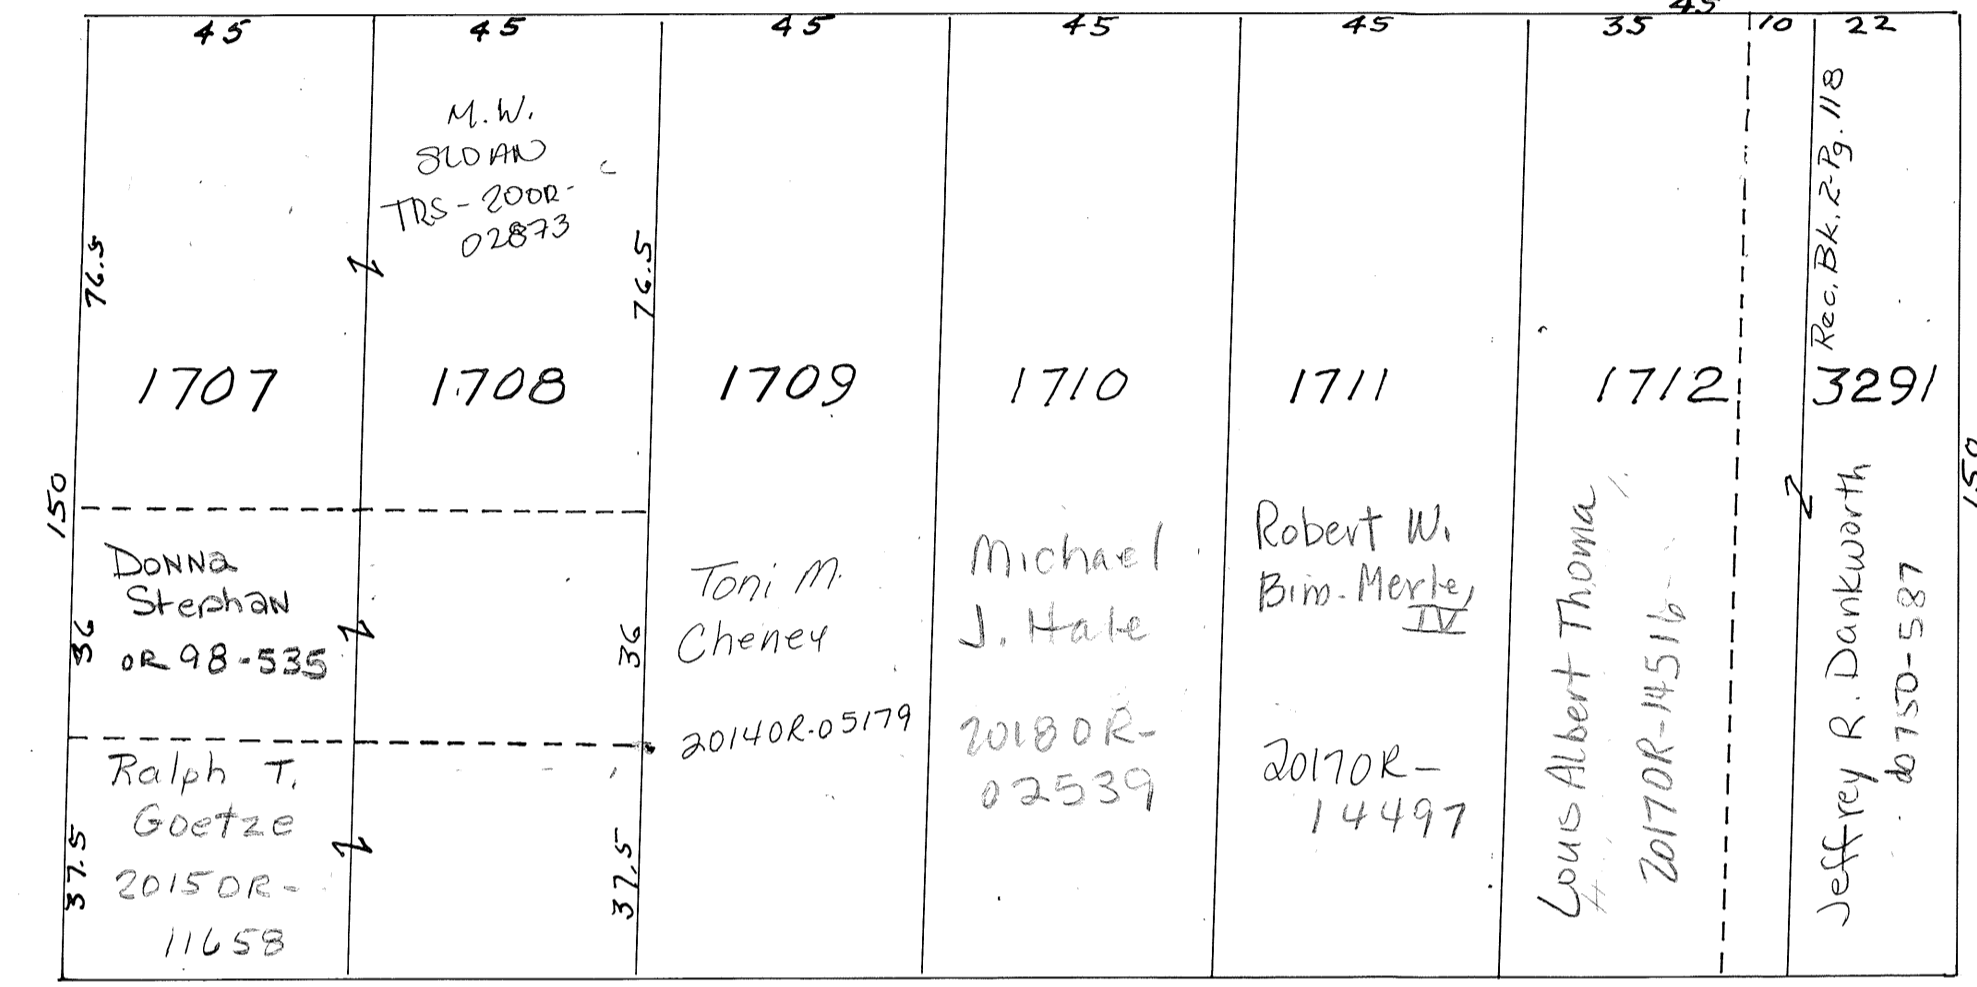 45
45
45
45
45
45
35
10
22
M.W.
SLOAN
TRS-200R-
02873
76.5
76.5
Rec. Bk. 2-Pg. 118
1707
1708
1709
1710
1711
1712
3291
150
150
Donna
Stephan
OR 98-535
36
36
Toni M.
Cheney
20140R-05179
Michael
J. Hale
20180R-
02539
Robert W.
IV
20170R-
14497
Louis Albert Thoma
20170R-14516
Jeffrey R. Dankworth
0750-587
Ralph T.
Goetze
20150R-
11658
37.5
37.5